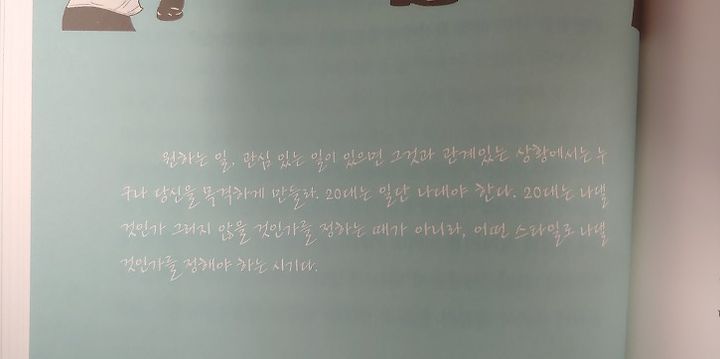 원하는 일, 관심 있는 일이 있으면 그것과 관계있는 상황에서는 누
구나 당신을 목격하게 만들라. 20대는 일단 나대야 한다. 20대는 나댈
것인가 그러지 않을 것인가를 정하는 때가 아니라, 어떤 스타일로 나댈
것인가를 정해야 하는 시기다.